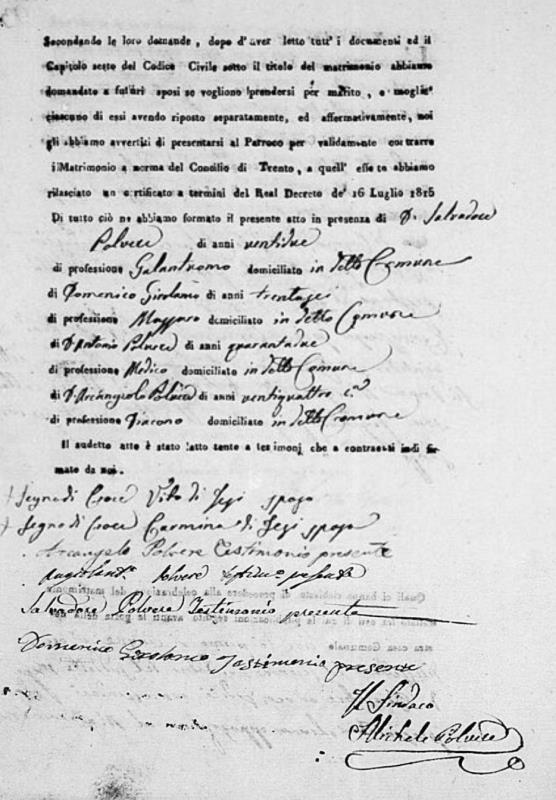 Secondando le loro domande, dopo d'aver letto tutt' i documenti ed il
Capitolo sesto del Codice Civile sotto il titolo del matrimonio abbiamo
domandato a futuri sposi se vogliono prendersi per marito, e moglie
ciascuno di essi avendo riposto separatamente, ed affermativamente, noi
gli abbiamo avvertiti di presentarsi al Parroco per validamente contrarre
il Matrimonio a norma del Concilio di Trento, a quell' effetto abbiamo
rilasciato un certificato a termini del Real Decreto de' 16 Luglio 1815
Di tutto ciò ne abbiamo formato il presente atto in presenza di D. Salvadore
Polvere di anni ventidue
di professione Galantuomo domiciliato in detto Comune
di Domenico Girolamo di anni trentasei
di professione Massaro domiciliato in detto Comune
di D. Antonio Polvere di anni quarantadue
di professione Medico domiciliato in detto Comune
di D. Arcangiolo Polvere di anni ventiquattro
di professione Diacono domiciliato in detto Comune
Il sudetto atto è stato letto tanto a testimonj che a contraenti indi fir
mato da noi.
+ Segno di Croce Vito di sposo
+ Segno di Croce Carmina di sposa
Arcangelo Polvere Testimonio presente
Polvere
Salvadore Polvere Testimonio presente
Domenico Testimonio presente
Il Sindaco
Michele Polvere